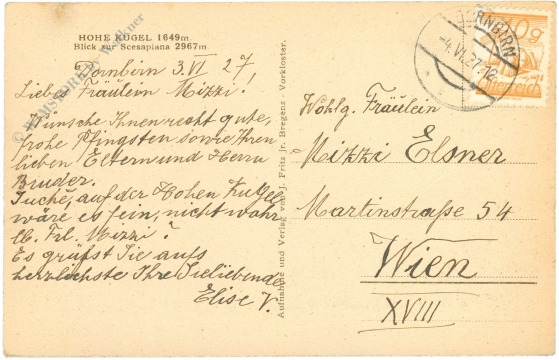 HOHE KUGEL 1649m
Blick zur Scesaplana 2967m
Dornbirn 3.VI 27,
Liebes Fräulein Mizzi!
Wünsche Ihnen recht gute,
frohe Pfingsten sowie Ihren
lieben Eltern und Herrn
Bruder.
auf der Hohen Kugel
wäre es fein, nicht wahr
lb. Frl. Mizzi?
Es grüßt Sie aufs
herzlichste Ihre Sie liebende
Elise V.
Aufnahme und Verlag von J. Fritz jr. Bregenz - Vorkloster.
DORNBIRN
-4.VI.27.12
10g
Österreich
Wohlg. Fräulein
Mizzi Elsner
Martinstraße 54
Wien
XVIII